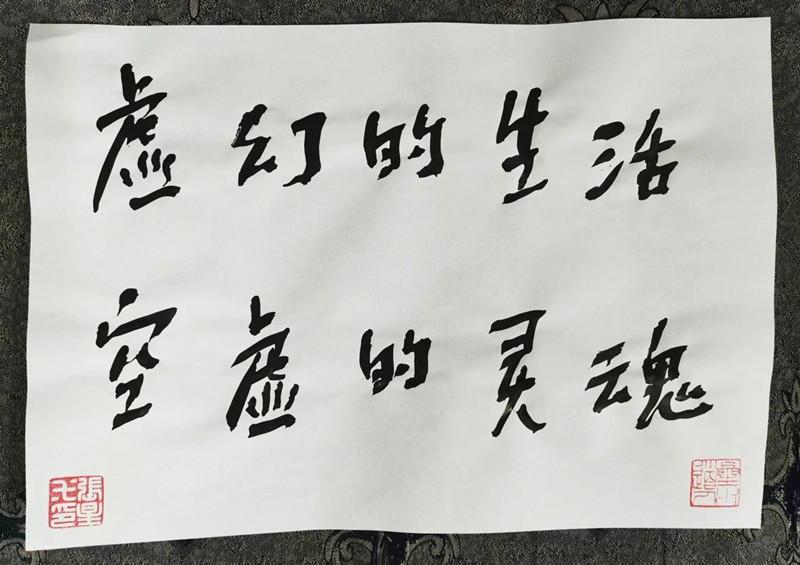 虚幻的生活
空虚的灵魂